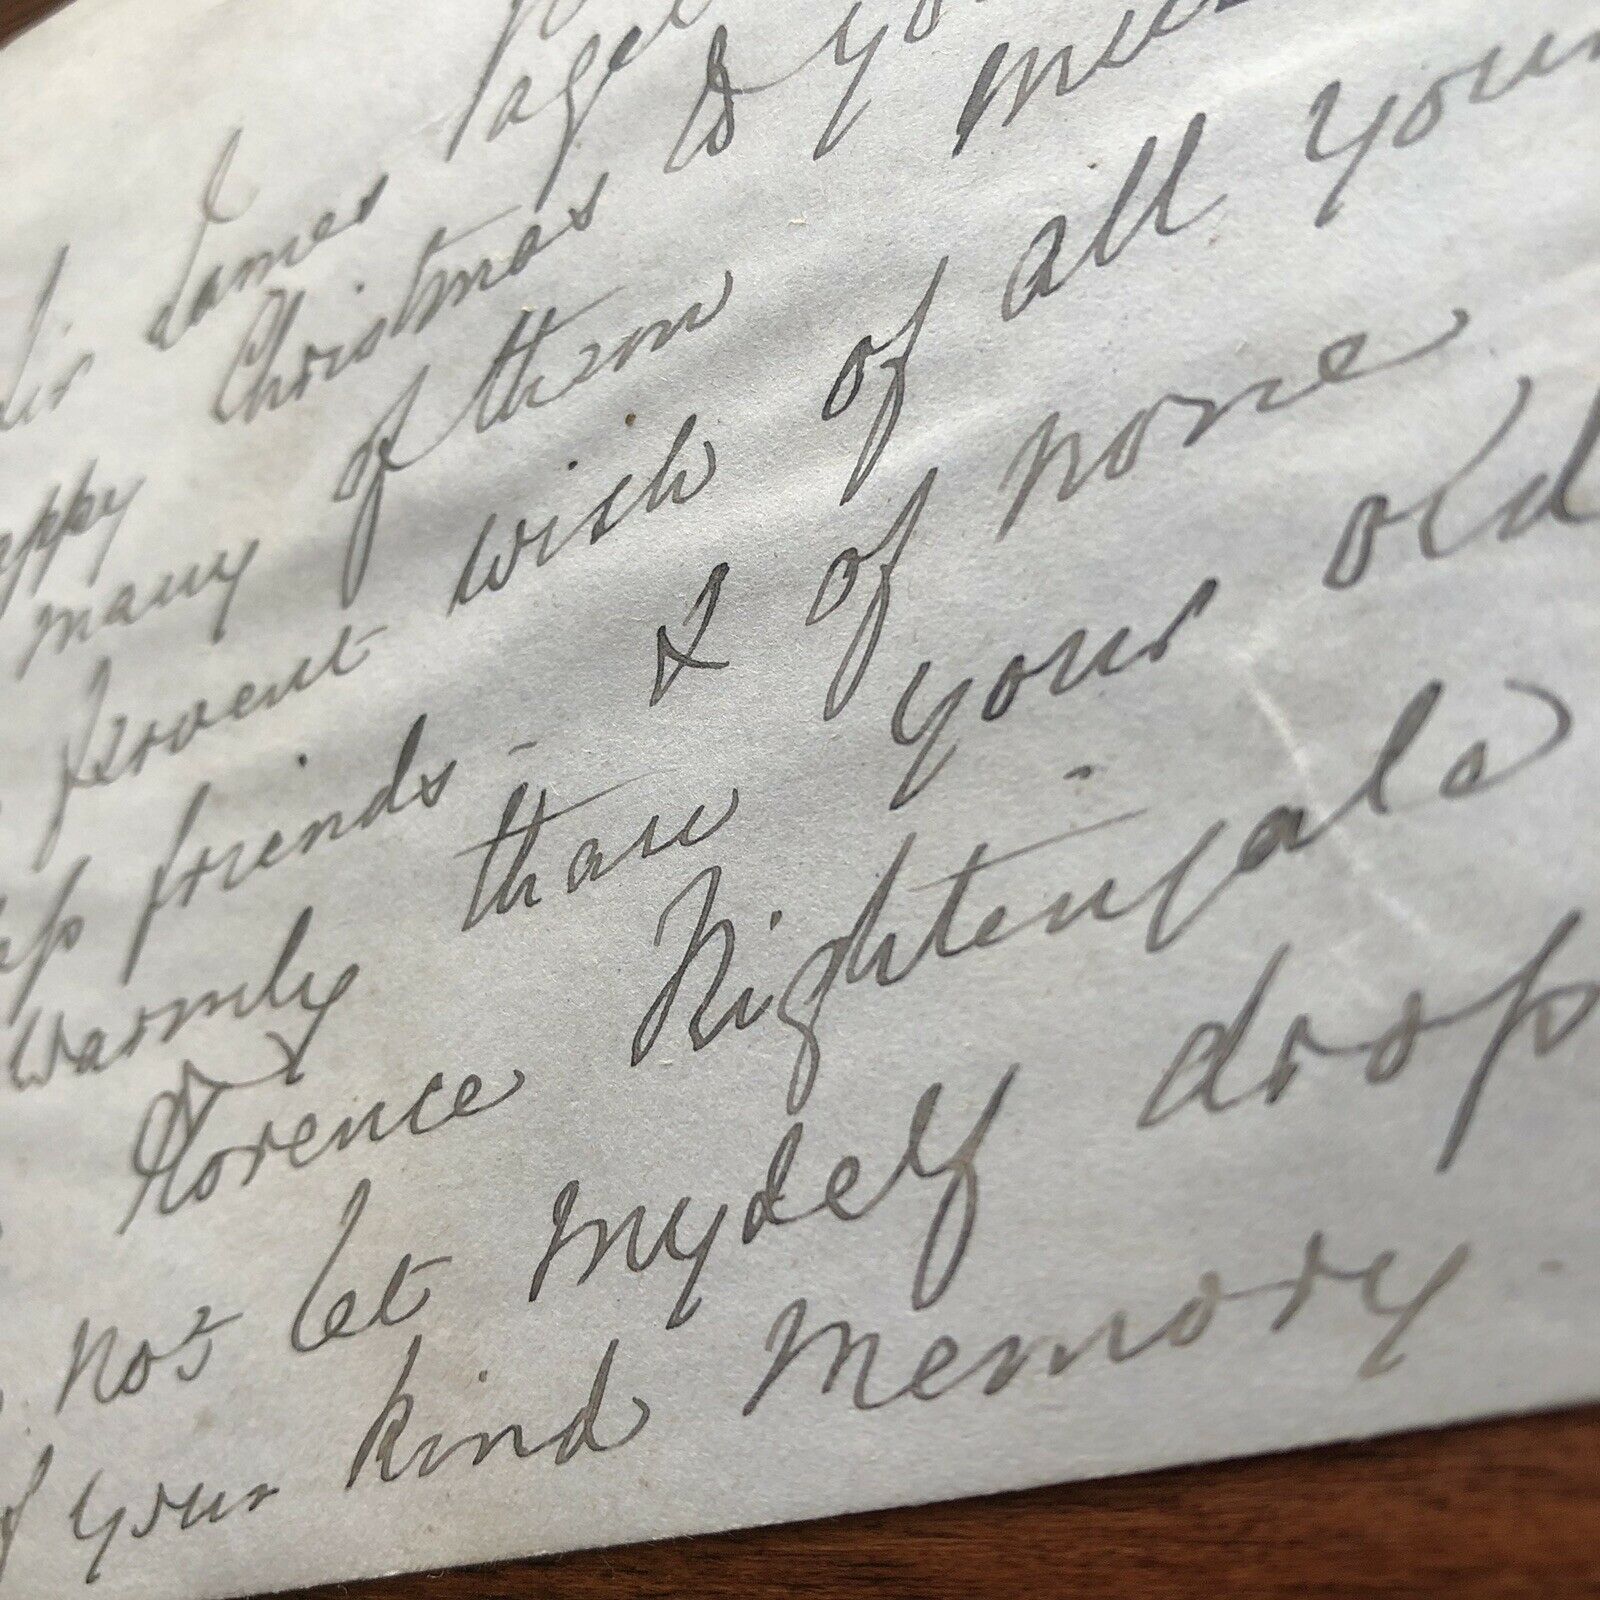 Sir James Paget
Christmas to you
many of them
fervent wish of all your
friends - & of none
warmly than your old
Florence Nightingale
not let myself drop
your kind memory.